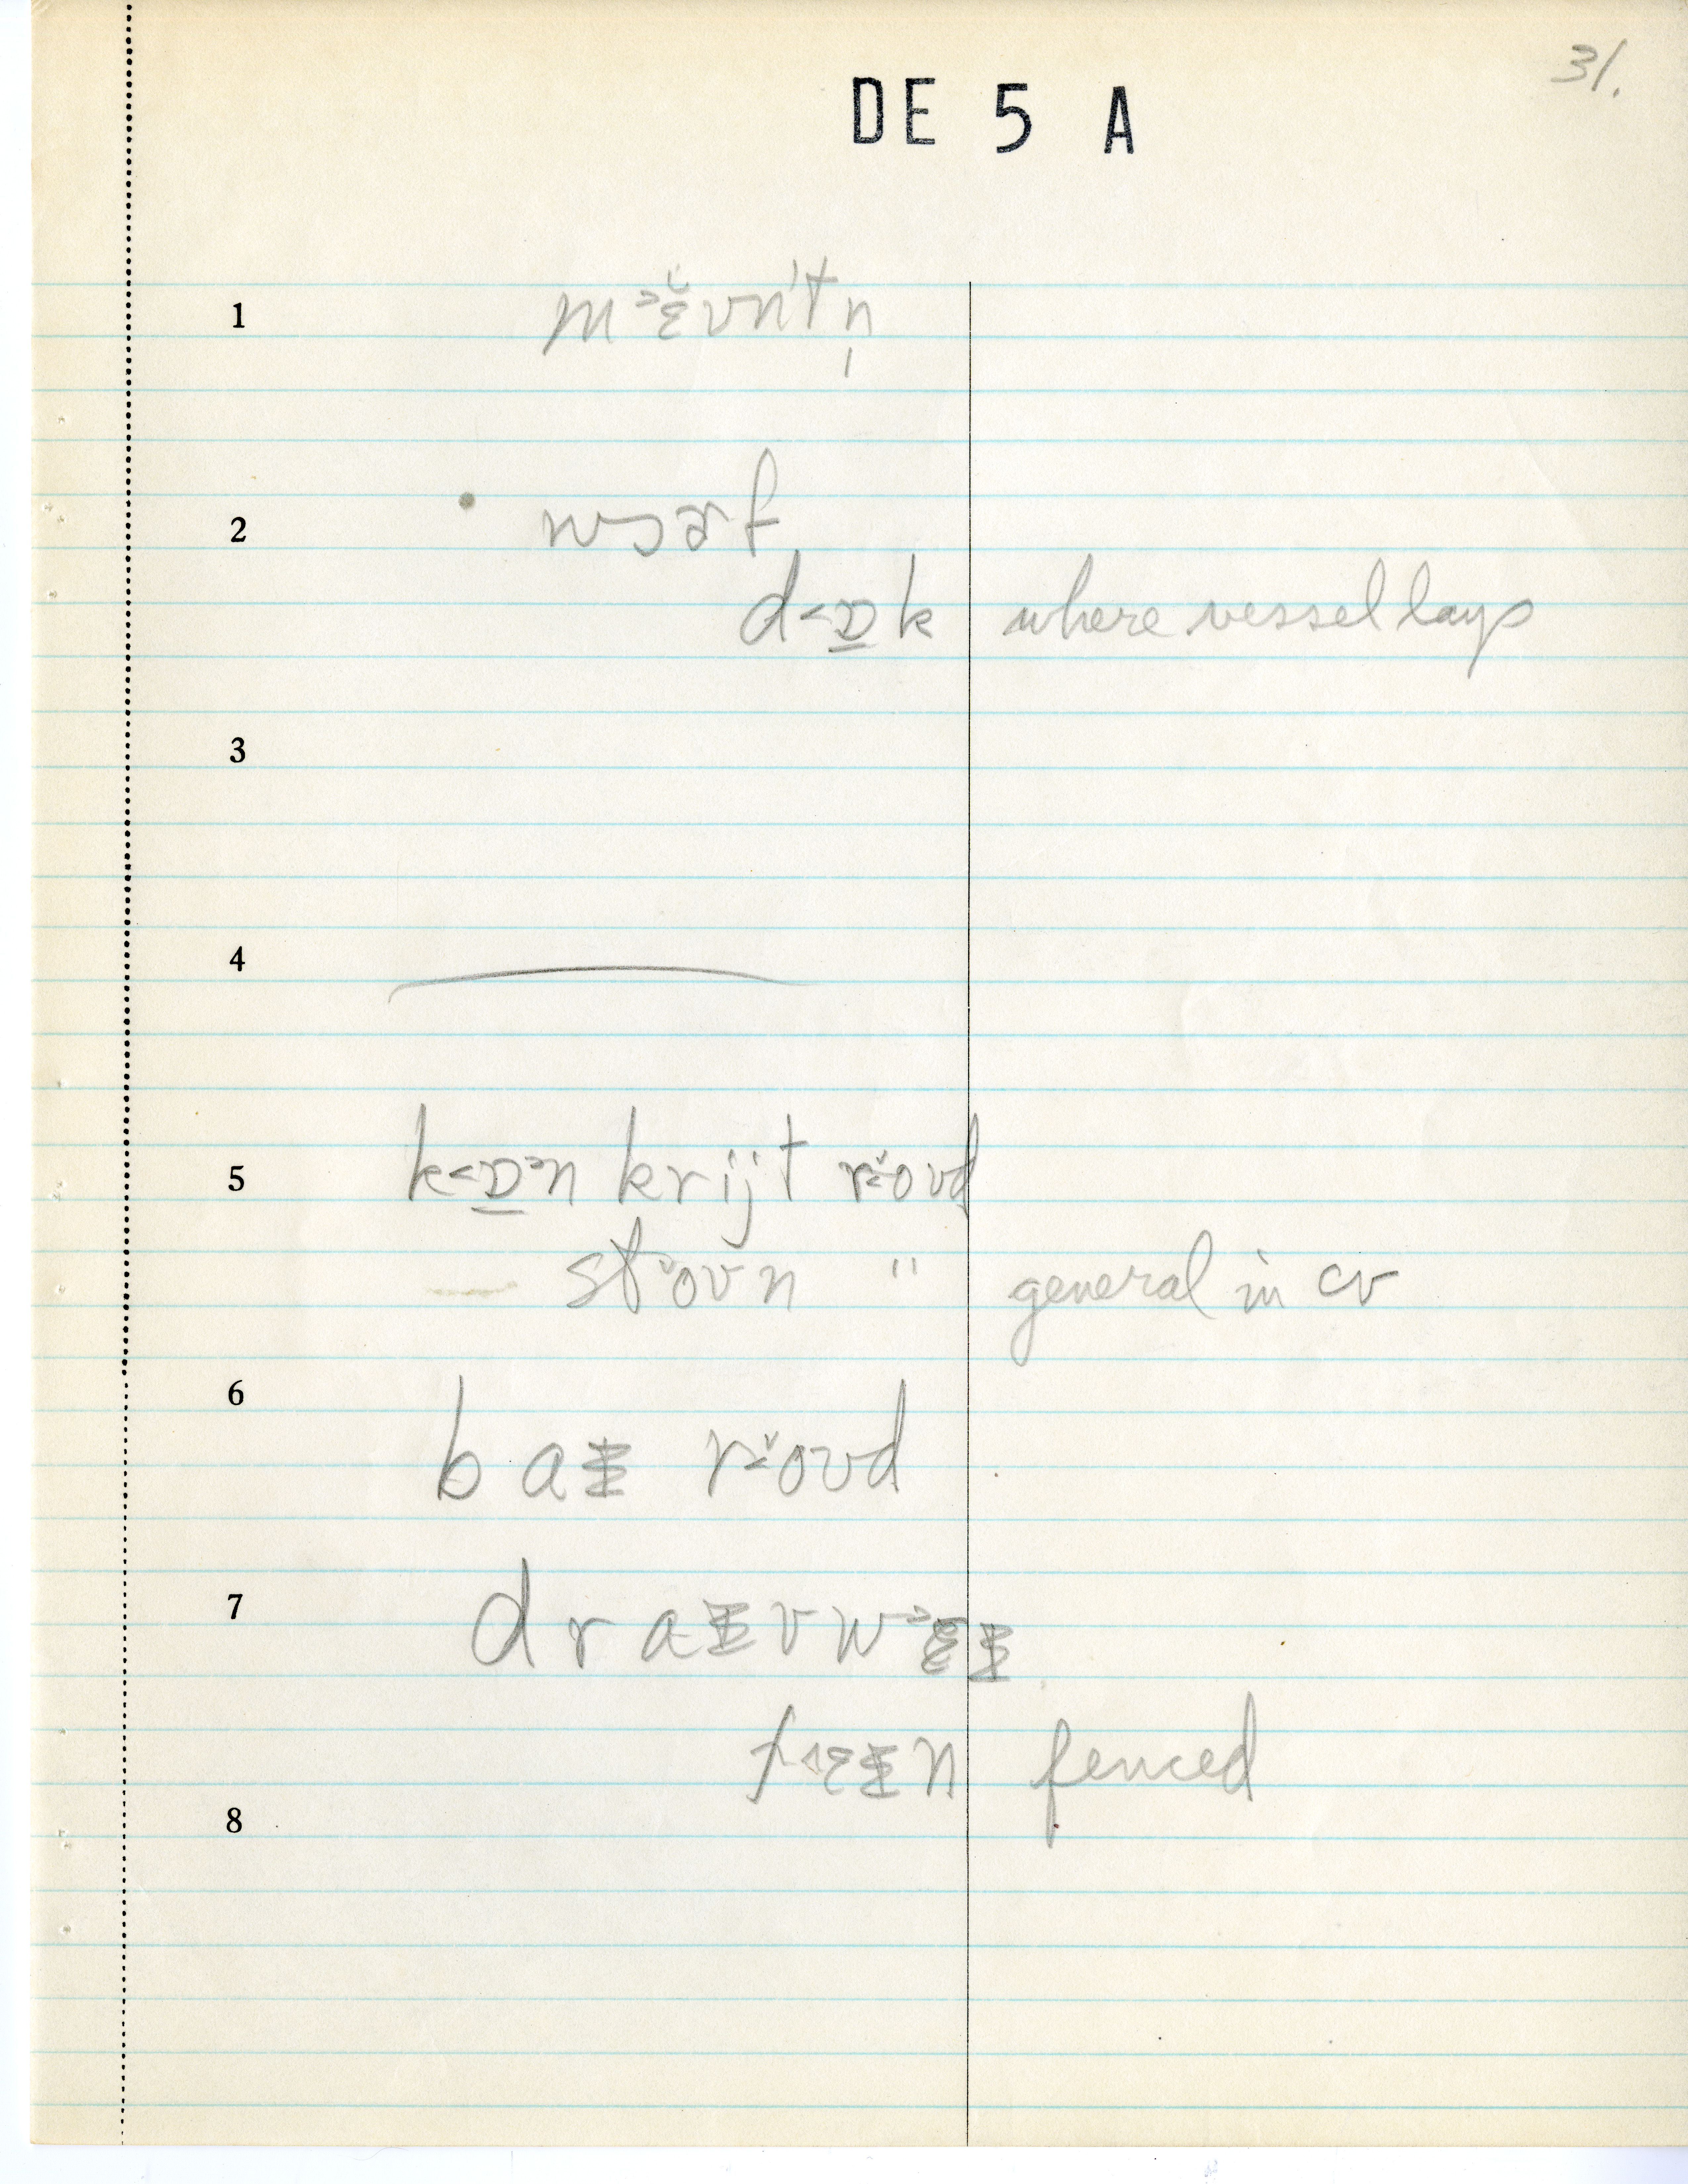 31.
DE 5 A
1 m˃ɛ̆ʊnʹtn̩
2 wɔɚf
d˂ɒ̲k where vessel lays
3
4
5 k˂ɒ̲˃n krijt r˂ŏʊd
st˂ŏʊn " general in cv
6 baɨ r˂ŏʊd
7 draɨvw˃ɛɨ
f˄ɛɨn fenced
8